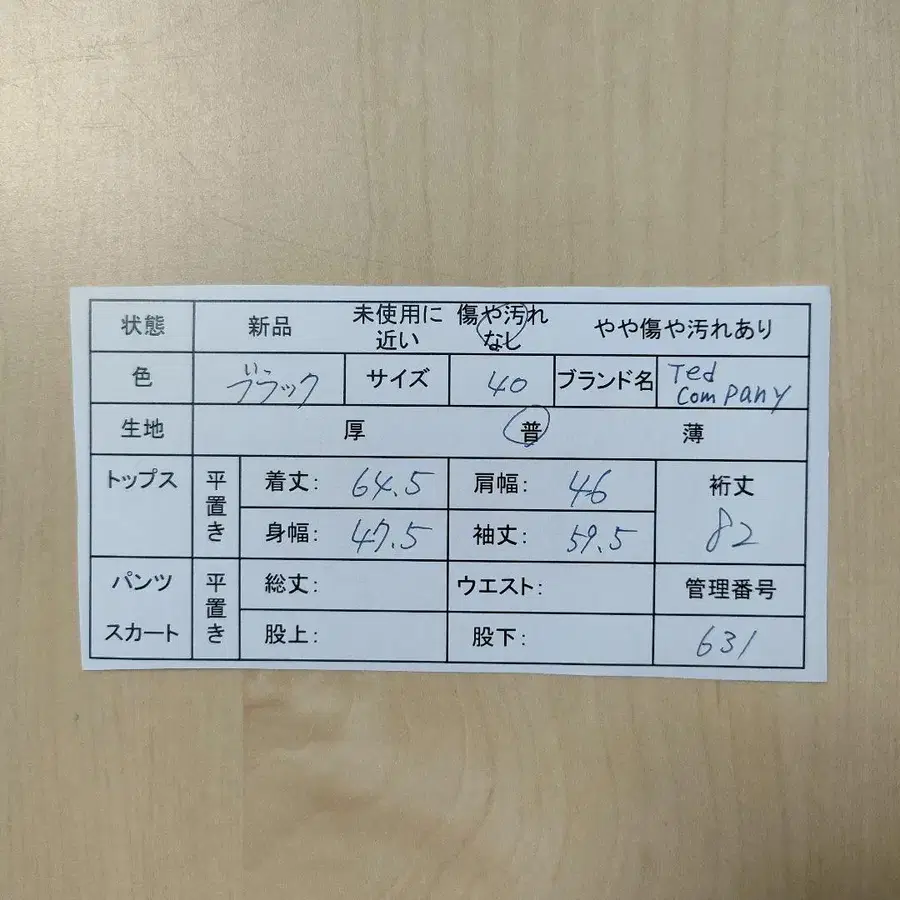 状態 新品 未使用に近い 傷や汚れなし やや傷や汚れあり
色 ブラック サイズ 40 ブランド名 Ted Company
生地 厚 普 薄
トップス 平置き 着丈: 64.5 肩幅: 46 裄丈
身幅: 47.5 袖丈: 59.5 82
パンツ 平置き 総丈: ウエスト: 管理番号
スカート 股上: 股下: 631